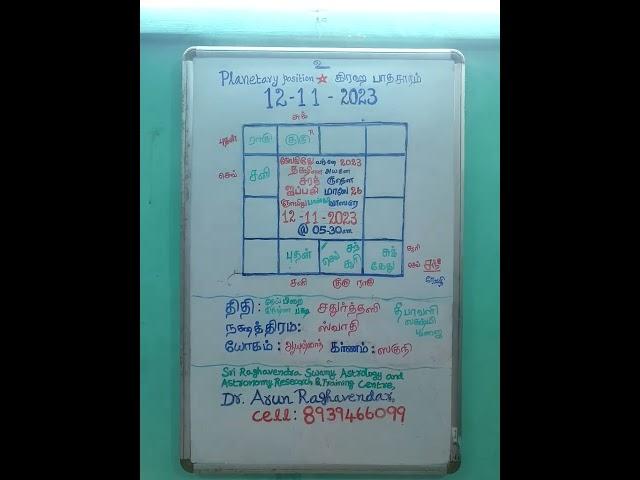 உ
Planetary position ☆ கிரஷ பாதசாரம்
12-11-2023
சுக்
புதன் ராகு குரு R
செய் சனி
2023
தக்ஷிண அயன
சரத் ருதுள
ஐப்பசி மாதம் 26
12-11-2023
@ 05-30am
புதன் செவ் சந் சூரி சுக் கேது
சூரி
செய் சந்
சனி குரு ராகு
திதி: தேய்பிறை கிருஷ்ண பக்ஷ சதுர்த்தசி
நக்ஷத்திரம்: ஸ்வாதி
யோகம்: ஆயுஷ்மான் கரணம்: ஸகுநி
தீபாவளி
லக்ஷ்மி
பூஜை
Sri Raghavendra Swamy Astrology and
Astronomy Research & Training Centre,
Dr. Arun Raghavendar,
cell: 8939466099